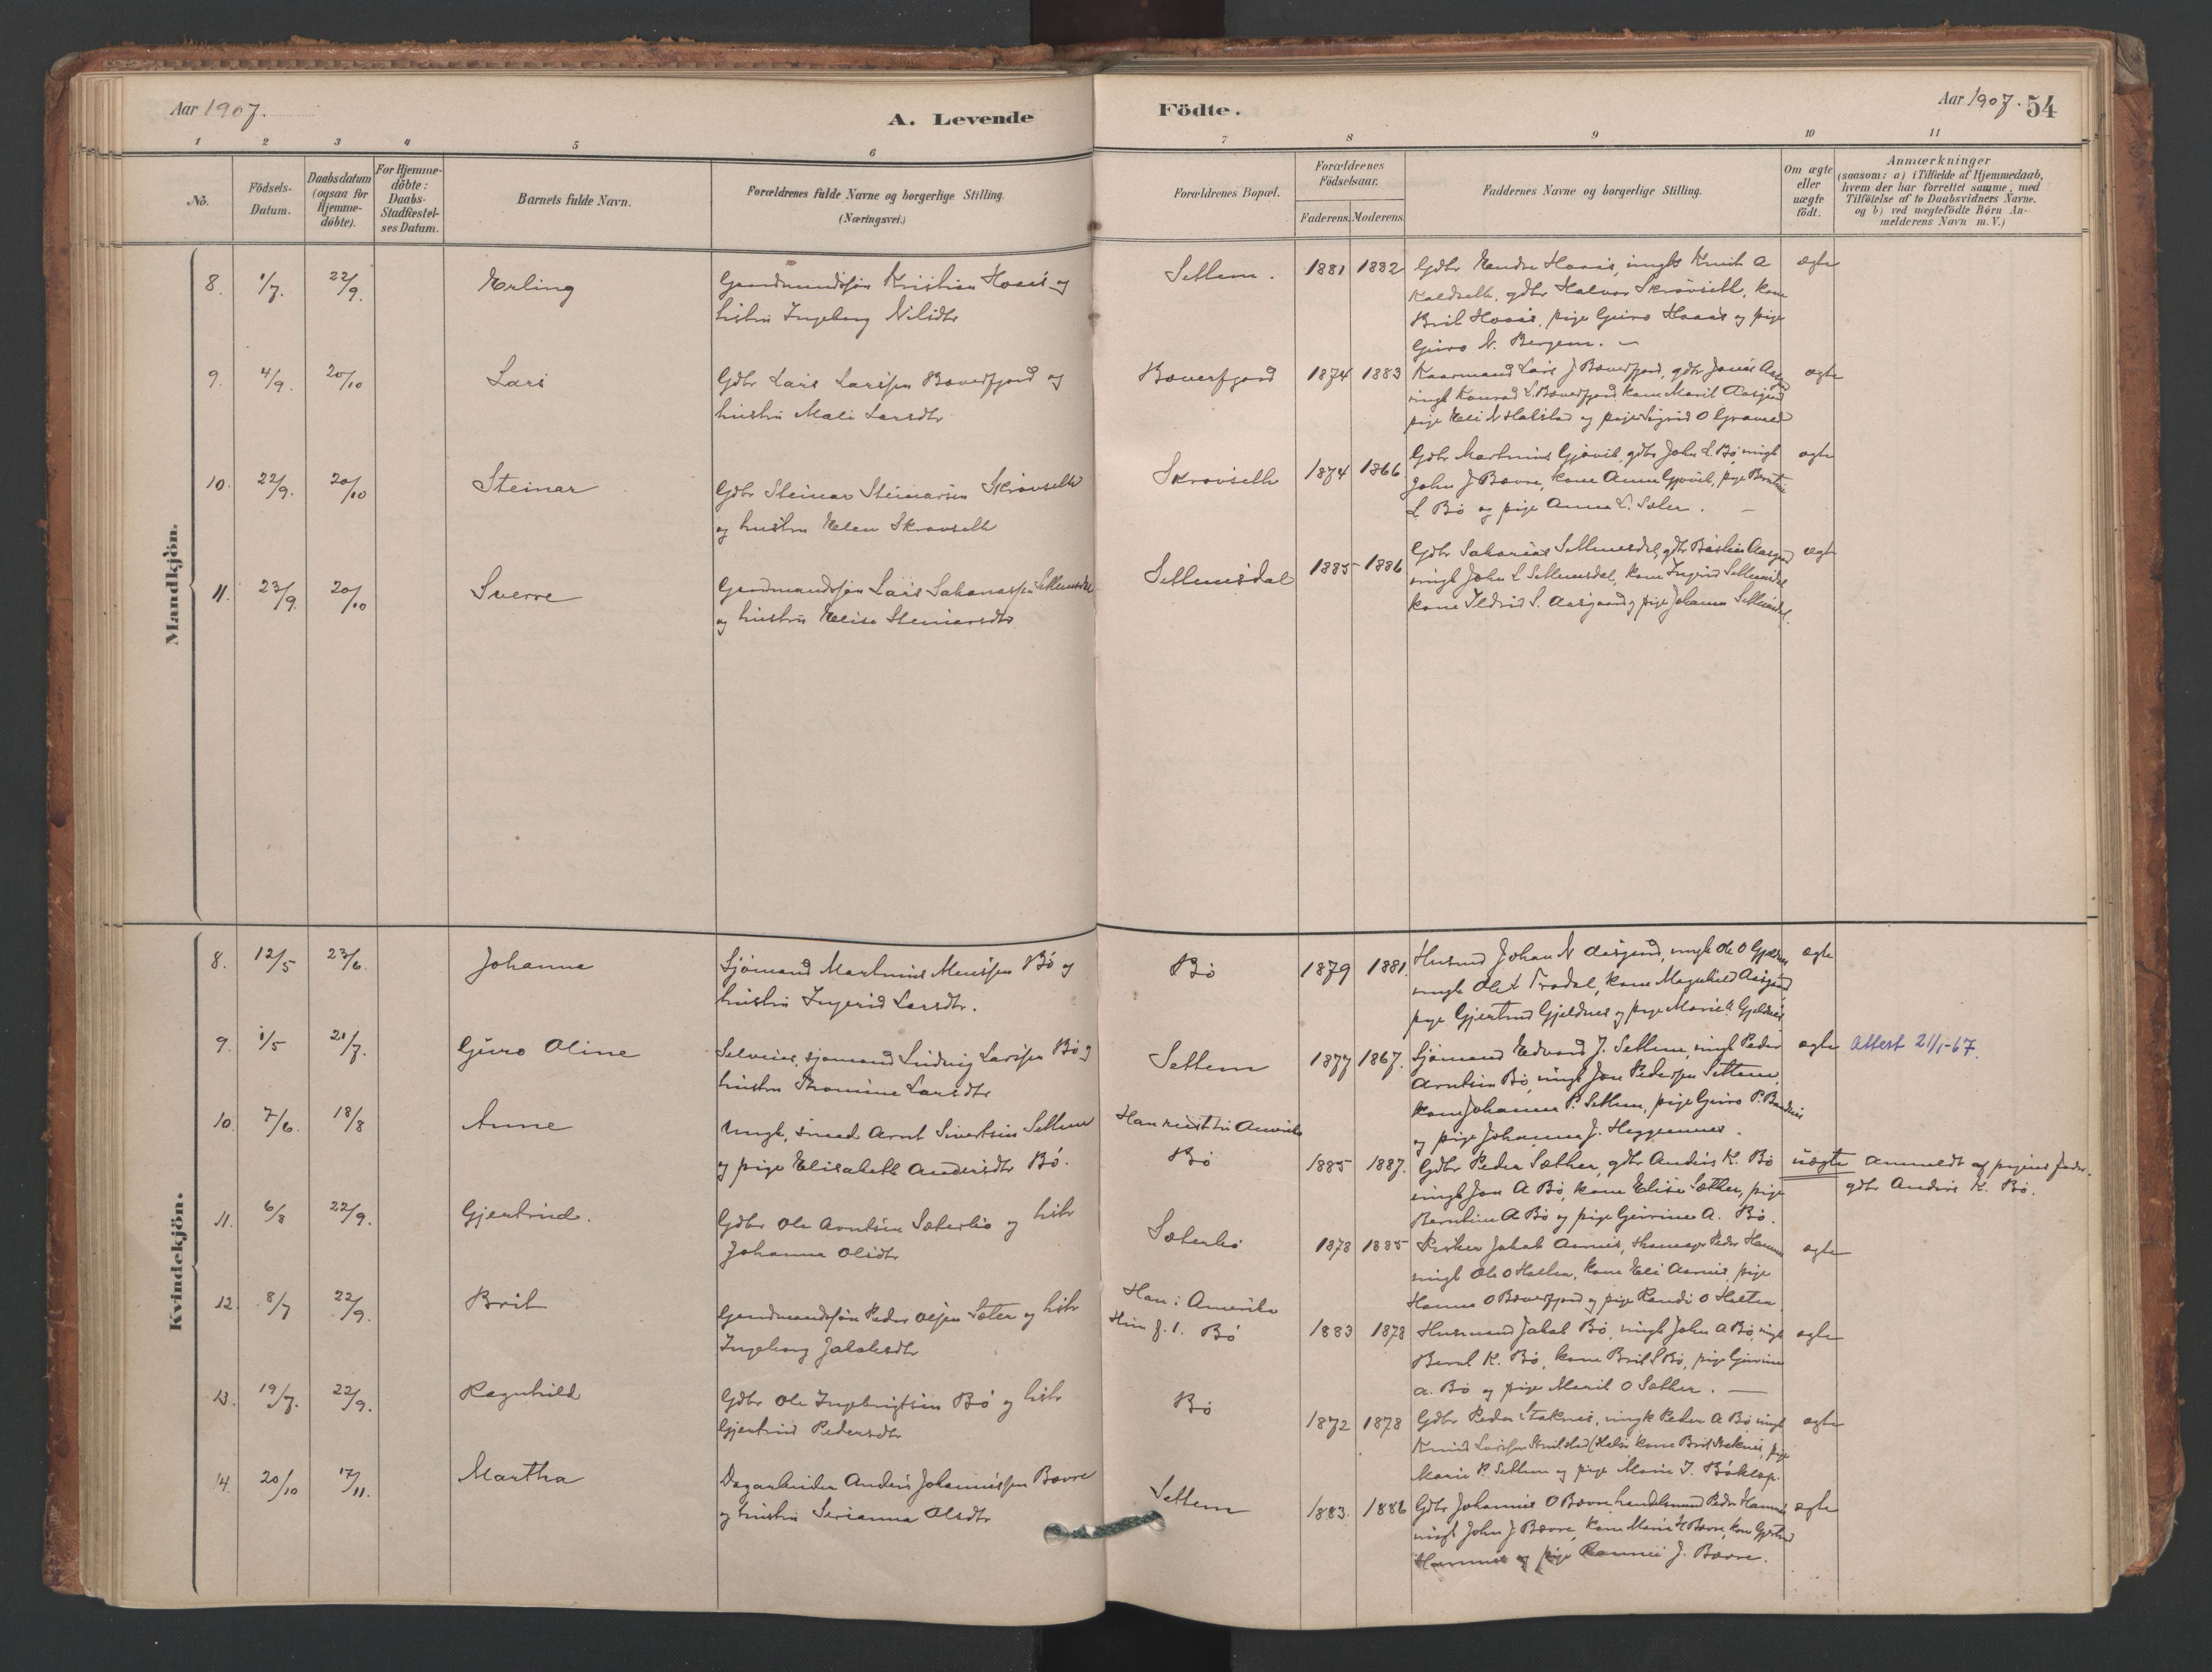 Aar 1907.
A. Levende Födte.
Aar 1907. 54
1 2 3 4 5 6 7 8 9 10 11
No.
Födsels-Datum.
Daabsdatum (ogsaa for Hjemme-döbte).
For Hjemme-döbte: Daabs-Stadfæstel-ses Datum.
Barnets fulde Navn.
Forældrenes fulde Navne og borgerlige Stilling.
(Næringsvei.)
Forældrenes Bopæl.
Forældrenes Födselsaar.
Faderens. Moderens.
Faddernes Navne og borgerlige Stilling.
Om ægte eller uægte födt.
Anmærkninger
(saasom: a) i Tilfælde af Hjemmedaab,
hvem der har forrettet samme, med
Tilföielse af to Daabsvidners Navne.
og b) ved uægtefödte Börn An-
melderens Navn m.V.)
Mandkjön.
8. 1/7. 22/9. Erling
Gaardmandssön Kristian Hoaas og
hustru Ingeborg Nilsdtr
Settem. 1881 1882
Gdbr Endre Hoaas, ungk Knut A
Kaldseth, gdbr Halvor Skrövseth, kone
Brit Hoaas, pige Guro Hoaas og pige
Guro N. Bergem. —
ægte
9. 4/9. 20/10 Lars
Gdbr Lars Larssen Bæverfjord og
hustru Mali Larsdtr
Bæverfjord 1874 1883
Kaarmand Lars J Bæverfjord, gdbr Jonas
ungk Konrad L. Bæverfjord, kone Marit Aasgard
pige Eli N Halstad og pige Sigrid O
ægte
10. 22/9. 20/10 Steinar
Gdbr Steinar Steinarsen Skrövseth
og hustru Elen Skrovseth
Skrovseth 1874 1866
Gdbr Martinus Gjøvik, gdbr John L. Bö, ungk
John J Bævre, kone Anne Gjøvik, pige Berntine
L Bö og pige Anna L. Sæter. —
ægte
11. 23/9. 20/10 Sverre
Gaardmandssön Lars Sakariassen Settemsdal
og hustru Elise Steinarsdtr
Settemsdal 1885 1886
Gdbr Sakarias Settemsdal, gdbr Aasgard
ungk John L Settemsdal, kone Ingrid Settemsdal
kone Ildrid S. Aasgaard og pige Johanna Settemsdal.
ægte
Kvindekjön.
8. 12/5 23/6. Johanna
Sjömand Martinus Monssen Bö og
hustru Ingerid Larsdtr.
Bö 1879 1881.
Husmd Johan N Aasgard, ungk Ole O Gjeldnes
ungk Ole L Trodal, kone Magnhild Aasgard,
pige Gjertrud Gjeldnes og pige Marie Gjeldnes.
ægte
9. 1/5 21/7. Guro Oline
Selveier, sjömand Ludvig Larssen Bö og
hustru Thomine Larsdtr
Settem 1877 1867.
Sjömand Edvard J. Settem, ungk Peder
Arntsen Bö, ungk Jon Pedersen Settem,
kone Johanna P. Settem, pige Guro P.
og pige Johanna J. Heggemnes.
ægte Attest 21/1-67.
10. 7/6. 18/8 Anne
Ungk, smed Arnt Sivertsen Settem
og pige Elisabeth Andersdtr Bö.
Han reist til Amerika
Bö 1885 1887.
Gdbr Peder Sæther, gdbr Anders K. Bö
ungk Jon A Bö, kone Elise Sæther, pige
Berntine A Bö og pige Gurine A. Bö.
uægte Anmeldt af pigens fader,
gdbr Anders K. Bö.
11. 6/8 22/9. Gjertrud.
Gdbr Ole Arntsen Sæterbö og hstr
Johanna Olsdtr
Sæterbö 1878 1885
Fisker Jakob Aarnes, Peder Hamnes
ungk Ole O Holten, kone Eli Aarnes, pige
Hanna O Bæverfjord og pige Randi O Holten.
ægte
12. 8/7 22/9. Brit
Gaardmandssön Peder Olsen Sæter og hstr
Ingeborg Jakobsdtr
Han i Amerika
Hun f. t. Bö 1883 1878
Husmand Jakob Bö, ungk John A Bö, ungk
Bernt K. Bö, kone Brit Bö, pige Gurine
A. Bö og pige Marit O Sæther. —
ægte
13. 19/7. 22/9. Ragnhild
Gdbr Ole Ingebrigtsen Bö og hstr
Gjertrud Pedersdtr
Bö 1872 1878
Gdbr Peder Staknes, ungk Peder A Bö, ungk
Knud Larssen kone Brit Staknes, pige
Marie P. Settem og pige Marie J. Böklep.
ægte
14. 20/10 17/11. Martha
Dagarbeider Anders Johannessen Bævre
og hustru Serianna Olsdtr
Settem 1883. 1886
Gdbr Johannes O Bævre, handelsmand Peder Hamnes
ungk John J Bævre, kone Marie H Bævre, kone Gjertrud
Hamnes og pige J. Bævre.
ægte